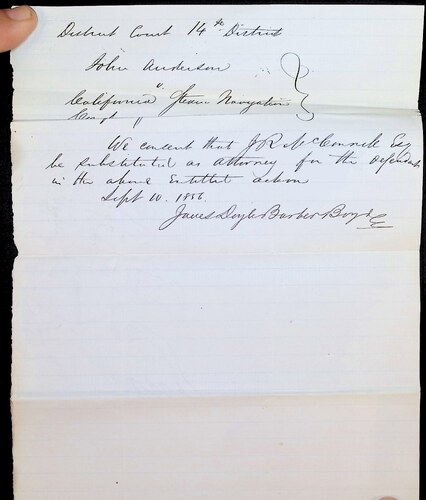 District Court 14th District
John Anderson
v.
California Steam Navigation
Compy
We consent that J R McConnell Esq
be substituted as attorney for the Defendants
in the above Entitled action
Sept 10. 1856
Janes Doyle Barber Boyd